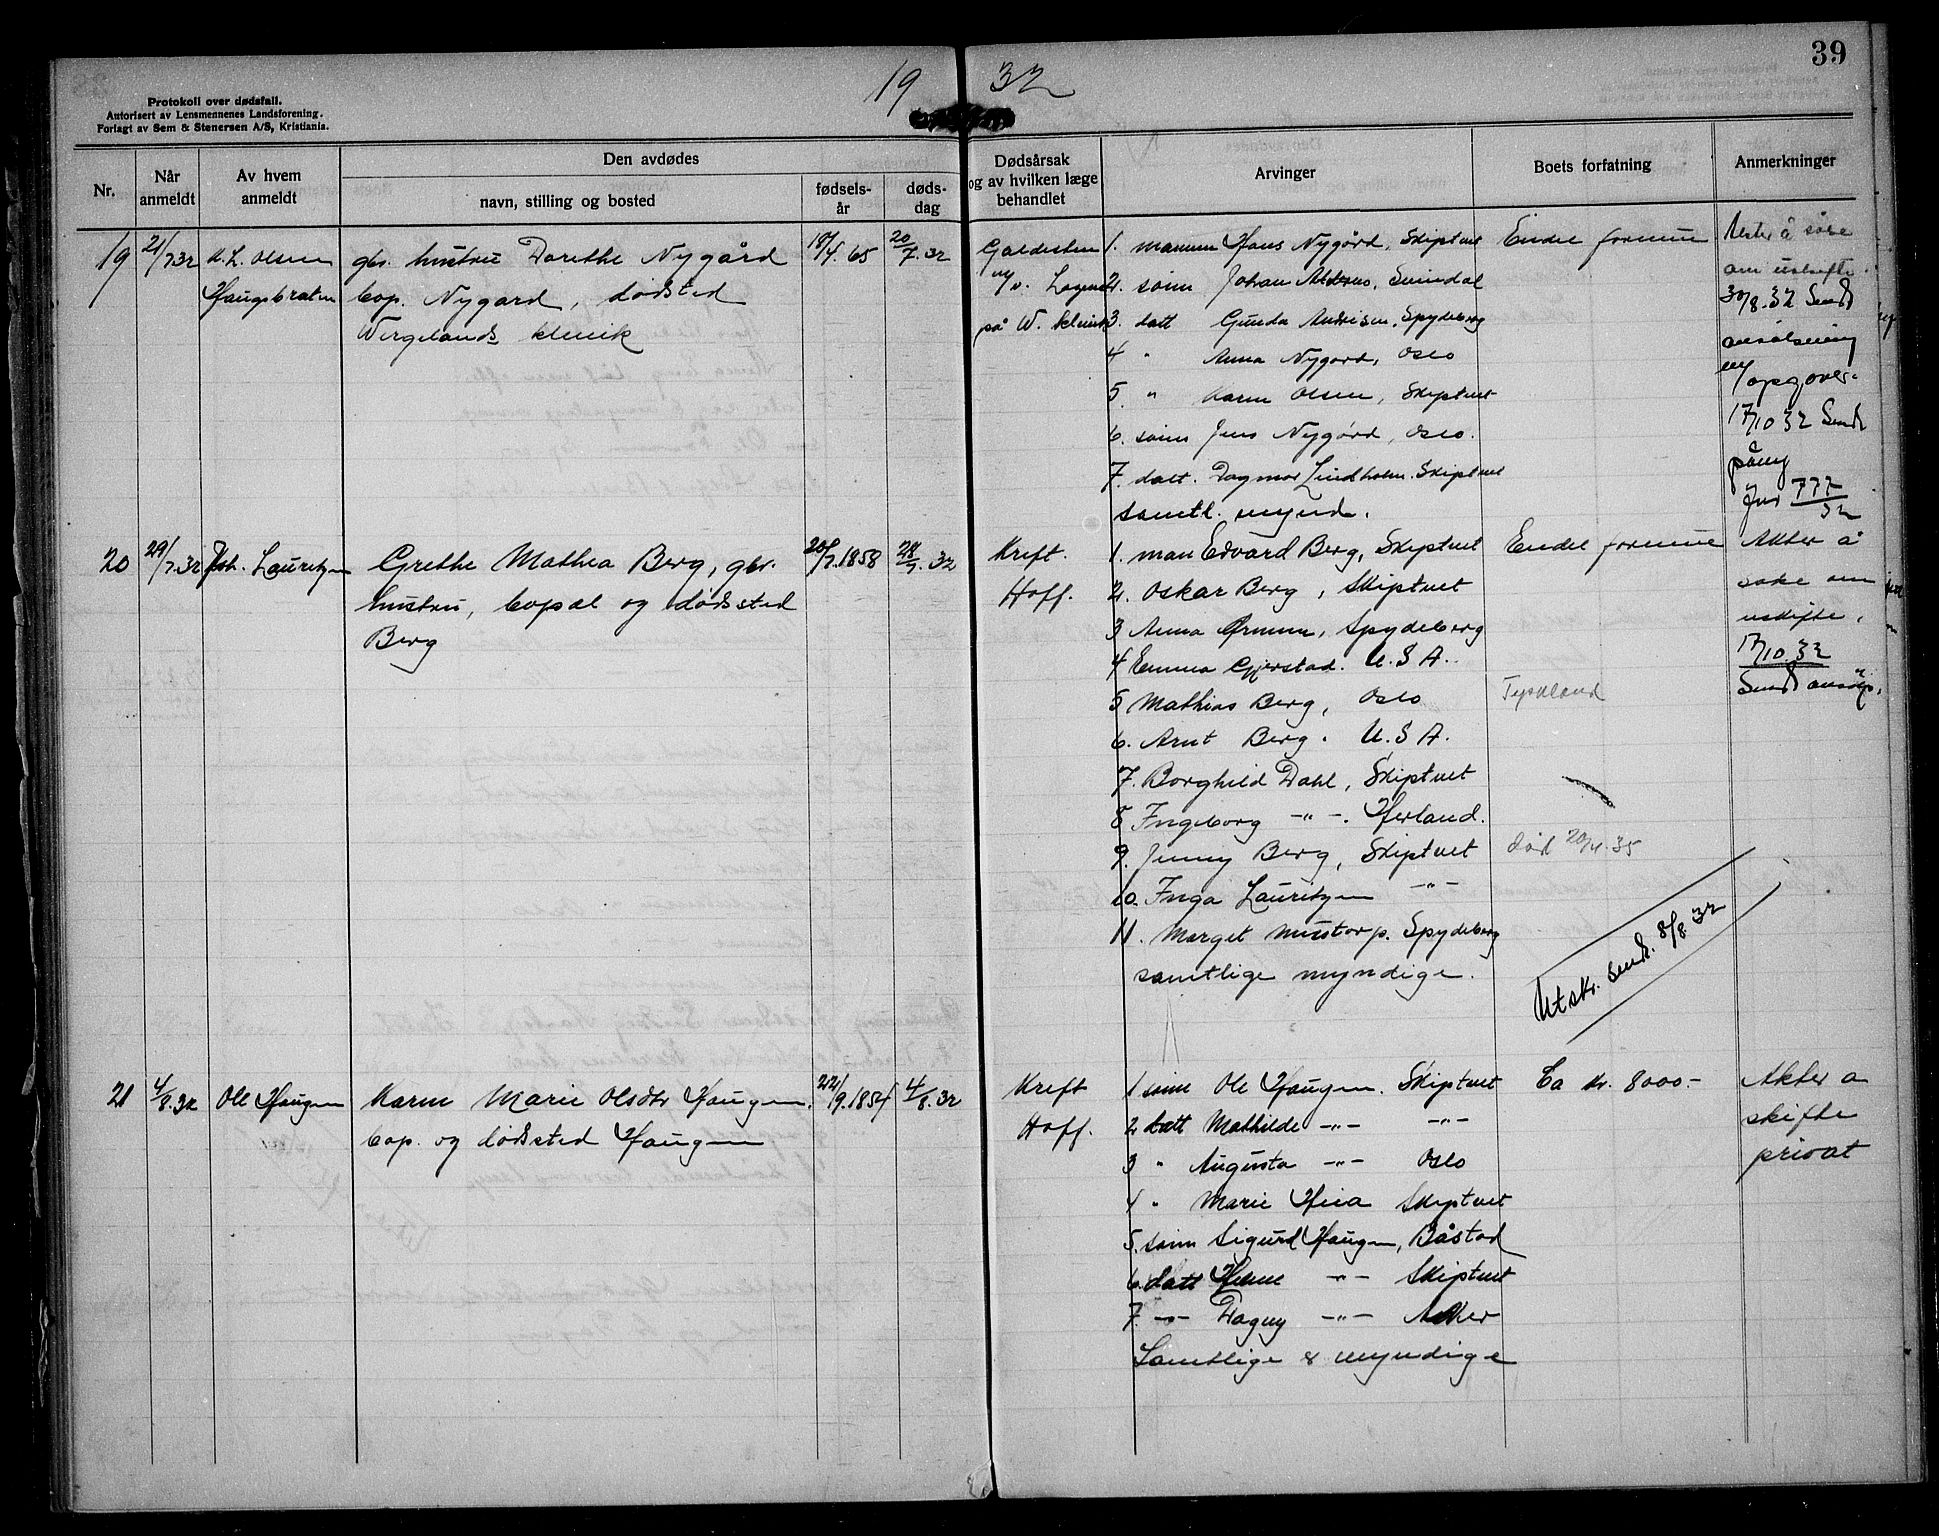 39
19 32
Protokoll over dødsfall.
Autorisert av Lensmennenes Landsforening.
Forlagt av Sem & Stenersen A/S, Kristiania.
Nr.
Når anmeldt
Av hvem anmeldt
Den avdødes
navn, stilling og bosted
fødsels-
år
døds-
dag
Dødsårsak
og av hvilken læge
behandlet
Arvinger
Boets forfatning
Anmerkninger
19
21/7 32
K. L. Olsen
Haugsbraten
gbr. hustru Dorethe Nygård
bop. Nygard, dødsted
Wergelands klinik
18/4. 65
20/7. 32
Galdesten
på W. klinik
1. mannen Hans Nygård, Skiptvet
2. sønn Johan Svindal
3. datt Gunda Andresen, Spydeberg
4 " Anna Nygård, Oslo
5. " Karen Olsen, Skiptvet
6. sønn Jens Nygård, Oslo.
7. datt. Dagmar Lindholm. Skiptvet
samtl. mynd.
Endel formue
Akter å søke
om uskifte.
30/8.32 Sendt
ansøkning
m/opgover.
17/10 32 Sendt
påny
Jnr 777/32
20
29/7.32
Joh. Lauritzen
Grethe Mathea Berg, gbr.
hustru, bopæl og dødssted
Berg
20/7.1858
28/7. 32
Kreft.
Hoff.
1. man Edvard Berg, Skiptvet
2. Oskar Berg, Skiptvet
3 Anna Ørmen, Spydeberg
4 Emma Gjerstad. U.S.A.
5 Mathias Berg, Oslo
6. Arnt Berg. U.S.A.
7. Borghild Dahl, Skiptvet
8 Ingeborg -"-. Hærland.
9. Jenny Berg, Skiptvet
10. Inga Lauritzen -"-
11. Marget Mustorp. Spydeberg
samtlige myndige.
Endel formue
Tyskland
død 20/4.35
Utskr. sendt. 8/8 32
Akter å
søke om
uskifte,
17/10.32
Sendt ansøkn.
21
4/8.32
Ole Haugen
Karen Marie Olsdtr Haugen.
bop. og dødsted Haugen
22/9.1854
4/8.32
Kreft
Hoff.
1 sønn Ole Haugen. Skiptvet
2 datt Mathilde -"- -"-
3 " Augusta -"- Oslo
4 " Marie Heia Skiptvet
5. sønn Sigurd Haugen, Båstad
6. datt -"- Skiptvet
7. -"- Dagny -"- Aker
Samtlige er myndige
Ca kr. 8000.-
Akter a
skifte
privat